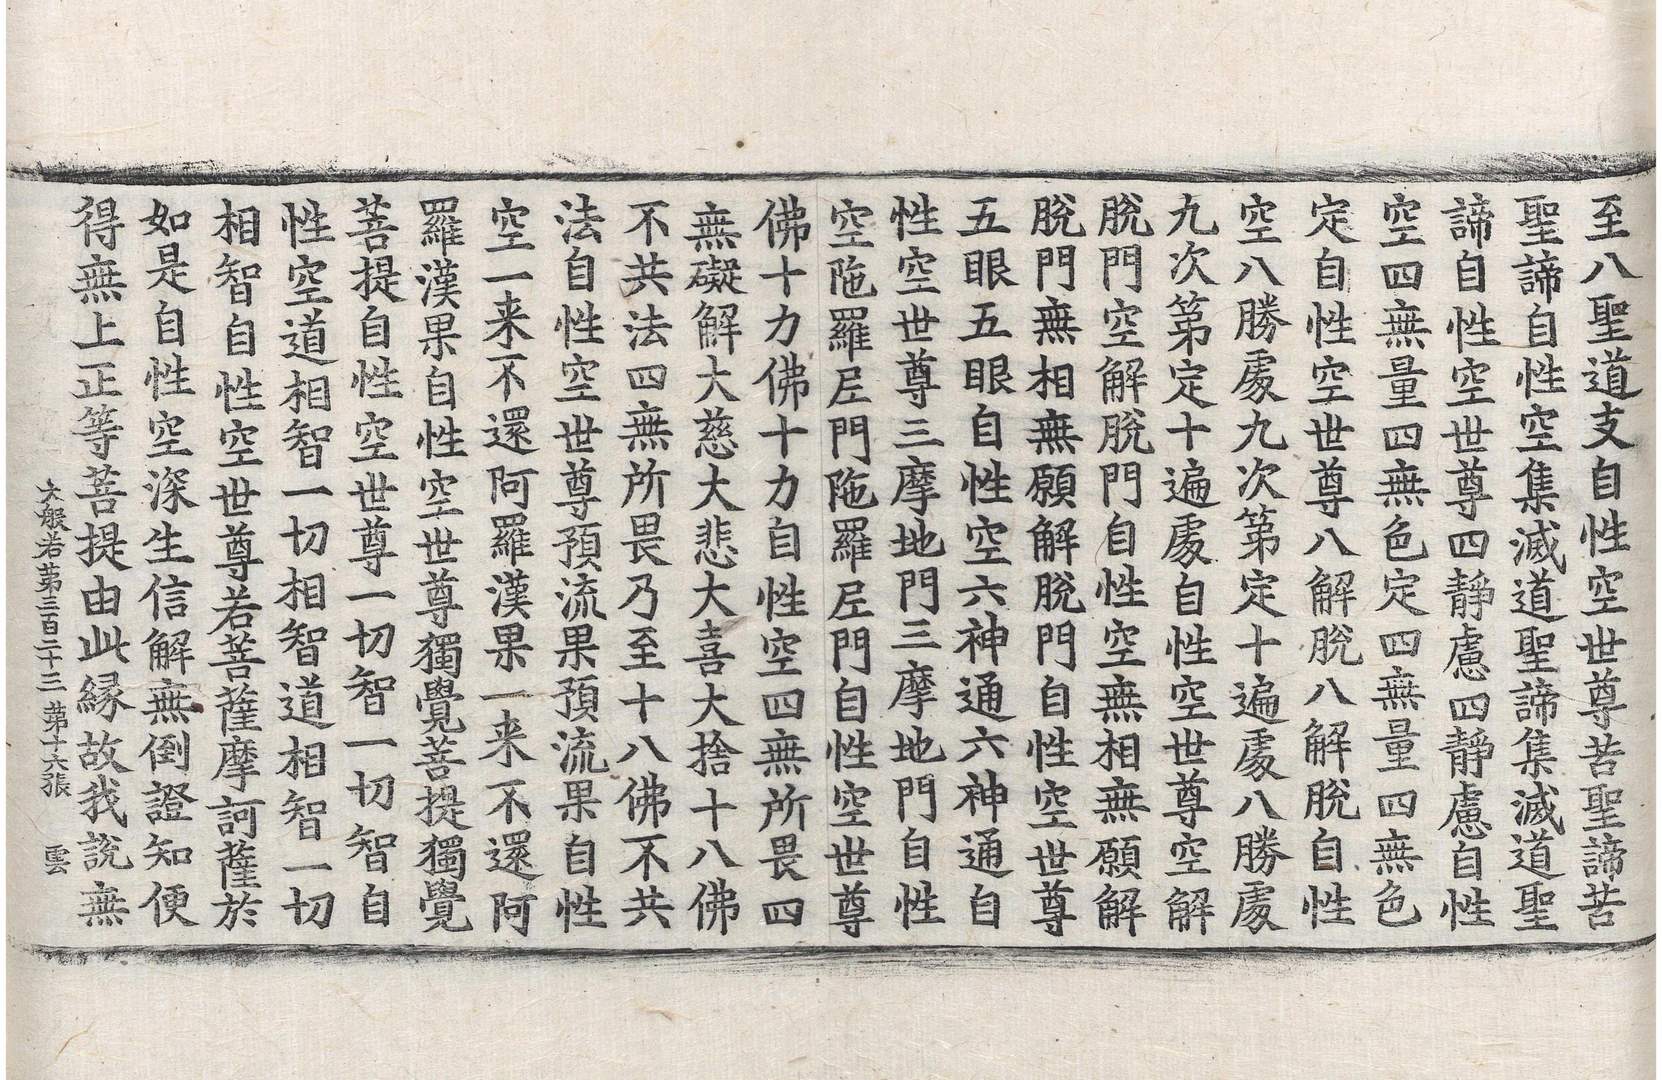 至八聖道支自性空世尊苦聖諦苦
聖諦自性空集滅道聖諦集滅道聖
諦自性空世尊四靜慮四靜慮自性
空四無量四無色定四無量四無色
定自性空世尊八解脫八解脫自性
空八勝處九次第定十遍處八勝處
九次第定十遍處自性空世尊空解
脫門空解脫門自性空無相無願解
脫門無相無願解脫門自性空世尊
五眼五眼自性空六神通六神通自
性空世尊三摩地門三摩地門自性
空陁羅尼門陁羅尼門自性空世尊
佛十力佛十力自性空四無所畏四
無礙解大慈大悲大喜大捨十八佛
不共法四無所畏乃至十八佛不共
法自性空世尊預流果預流果自性
空一来不還阿羅漢果一来不還阿
羅漢果自性空世尊獨覺菩提獨覺
菩提自性空世尊一切智一切智自
性空道相智一切相智道相智一切
相智自性空世尊若菩薩摩訶薩於
如是自性空深生信解無倒證知便
得無上正等菩提由此緣故我說無
大般若第三百二十三 第十六張 雲